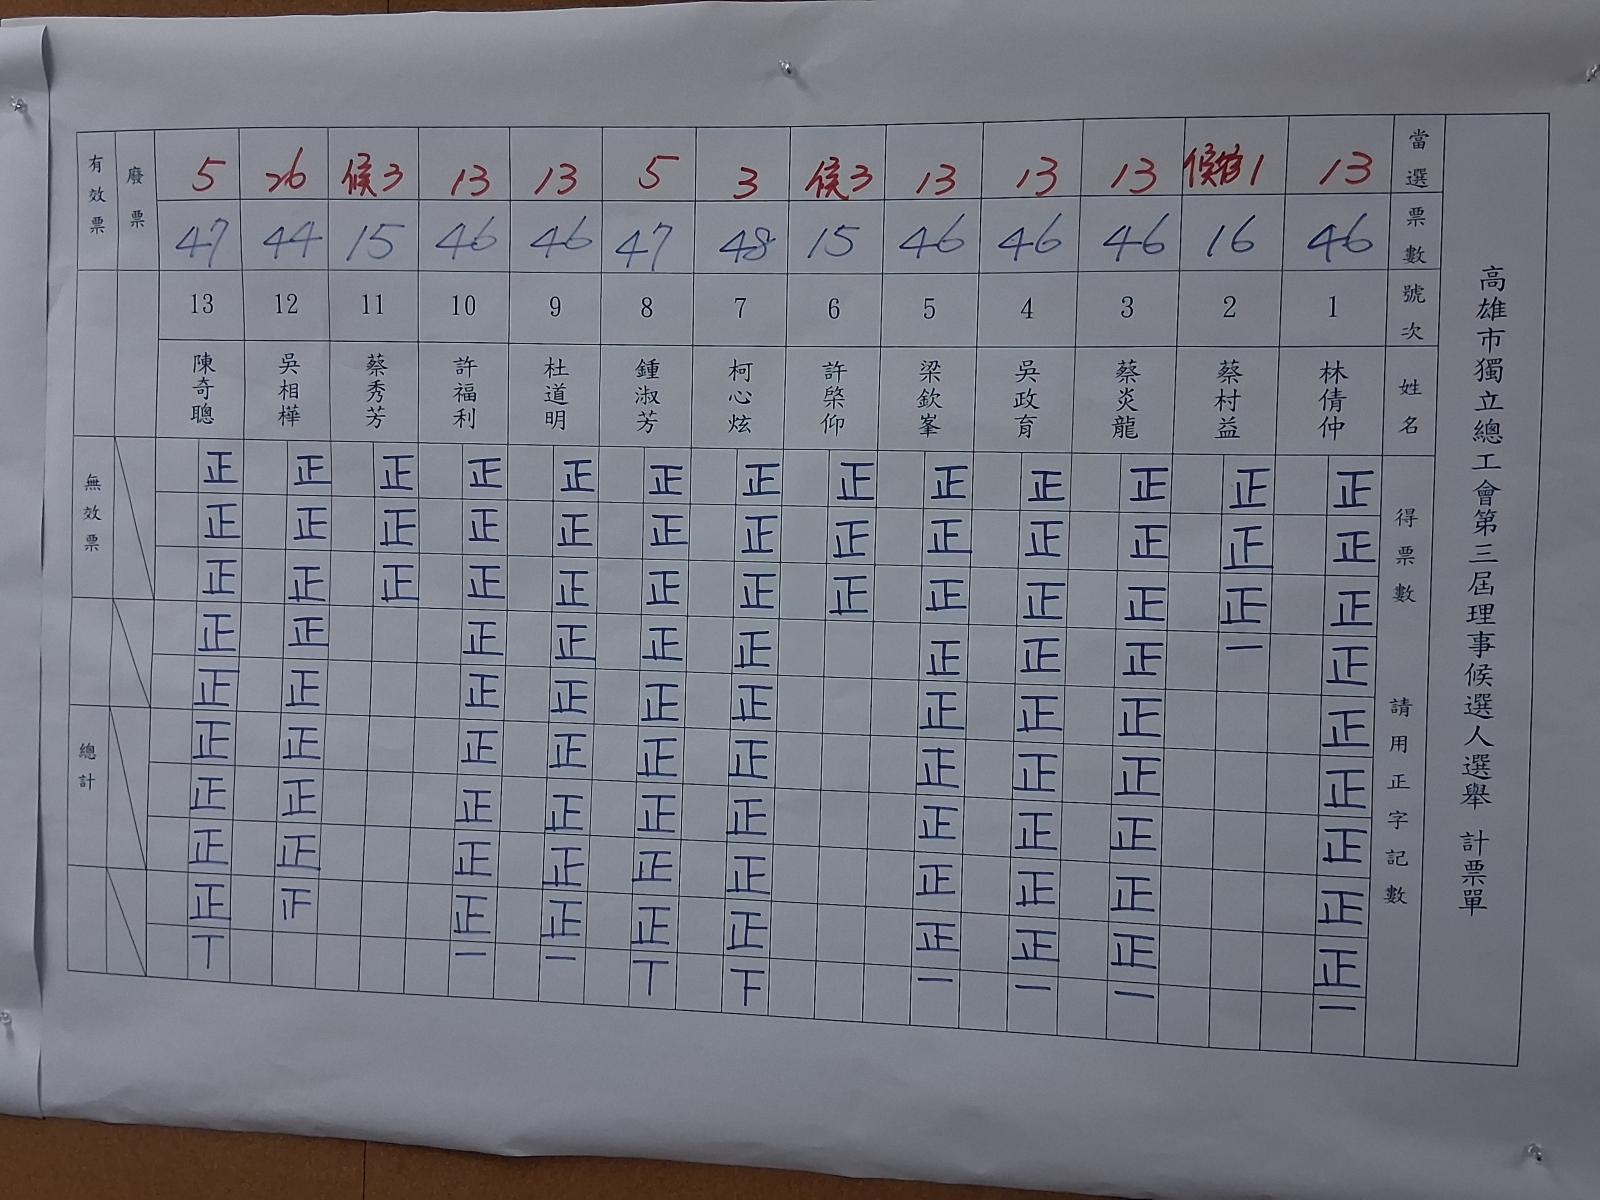 高雄市獨立總工會第三屆理事候選人選舉 計票單
當選 13 候補1 13 13 13 候3 3 5 13 13 候3 26 5
票數 46 16 46 46 46 15 48 47 46 46 15 44 47
號次 1 2 3 4 5 6 7 8 9 10 11 12 13
姓名 林倩仲 蔡村益 蔡炎龍 吳政育 梁欽峯 許棨仰 柯心炫 鍾淑芳 杜道明 許福利 蔡秀芳 吳相樺 陳奇聰
得票數 請用正字記數
正正正正正正正正正一
正正正一
正正正正正正正正正一
正正正正正正正正正一
正正正正正正正正正一
正正正
正正正正正正正正正下
正正正正正正正正正丅
正正正正正正正正正一
正正正正正正正正正一
正正正
正正正正正正正正
正正正正正正正正正丅
廢票
有效票
無效票
總計